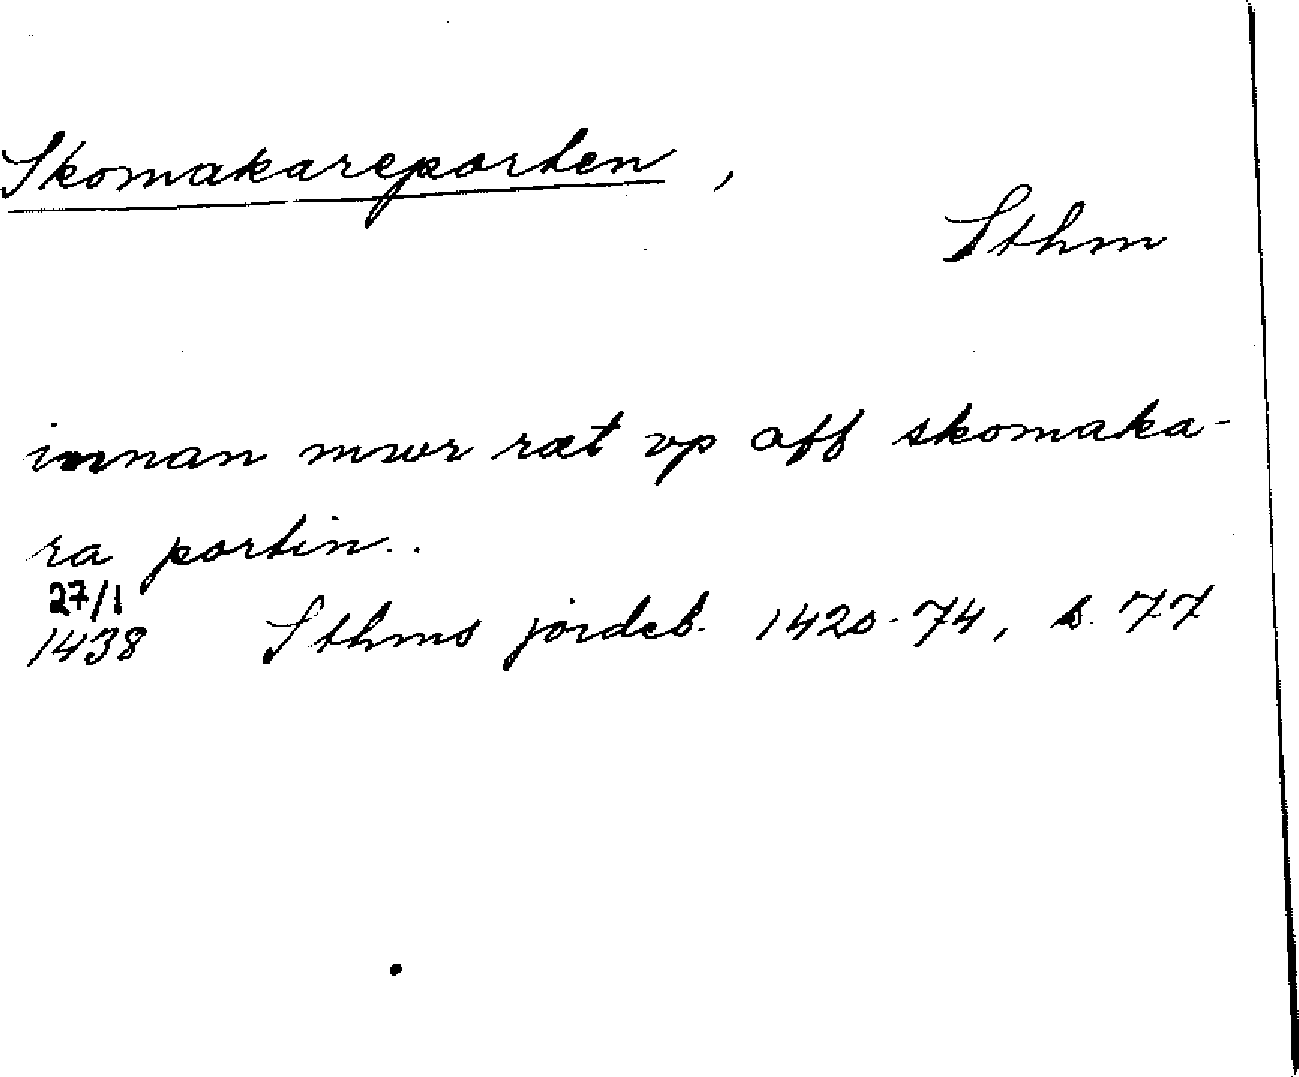 Skomakareporten,
Sthm
innan mwr ræt vp aff skomaka-
ra portin..
27/1
1438 Sthms jordeb. 1420-74, s. 77